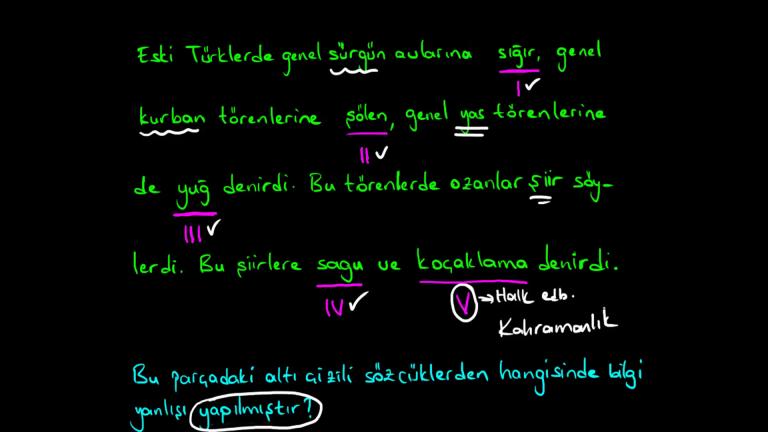 Eski Türklerde genel sürgün avlarına sığır, genel
I
kurban törenlerine şölen, genel yas törenlerine
II
de yuğ denirdi. Bu törenlerde ozanlar şiir söy-
III
lerdi. Bu şiirlere sagu ve koçaklama denirdi.
IV V → Halk edb.
Kahramanlık
Bu parçadaki altı çizili sözcüklerden hangisinde bilgi
yanlışı yapılmıştır?